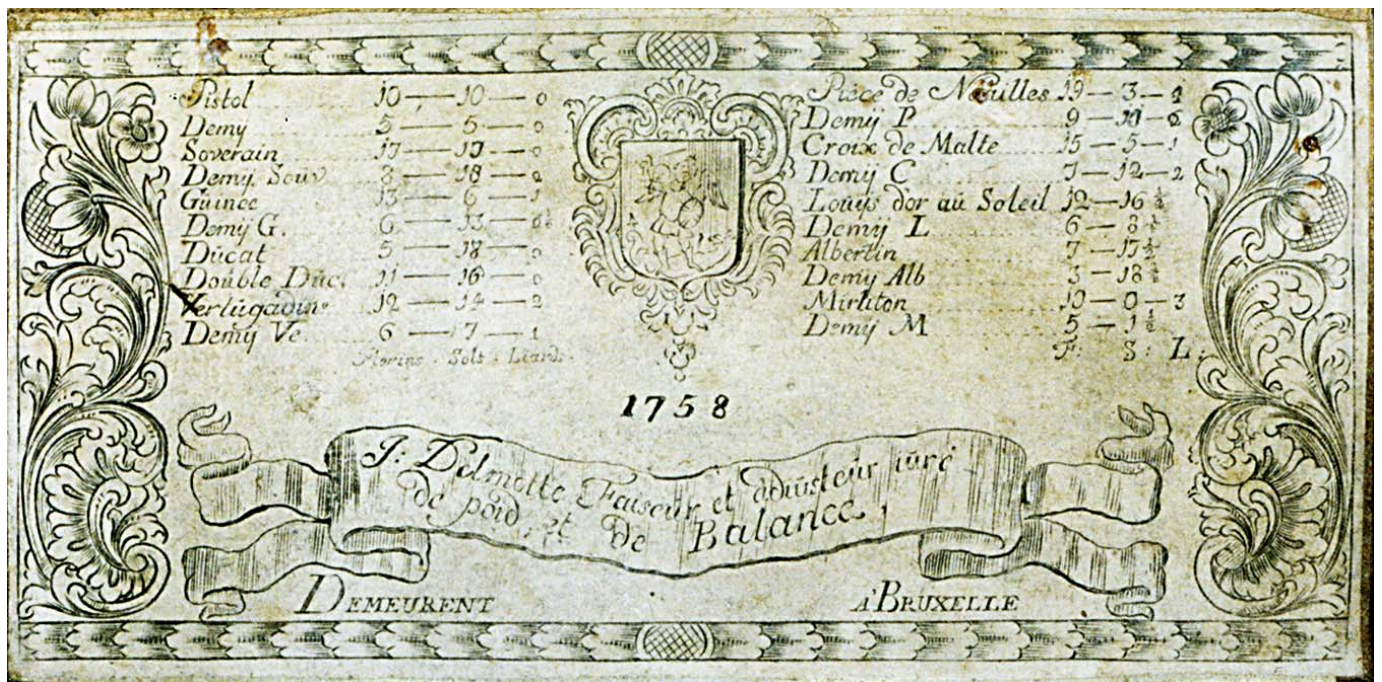 Pistol 10 — 10 — 0
Demy 5 — 5 — 0
Soverain 17 — 17 — 0
Demy Souv 8 — 18 — 2
Guinee 13 — 6 — 1
Demy G. 6 — 13 — 0½
Ducat 5 — 18 — 0
Double Duc. 11 — 16 — 0
Vertugadins 12 — 14 — 2
Demy Ve 6 — 7 — 1
Florins . Sols : Liards .
Piéce de Nouilles 19 — 3 —
Demy P 9 — 11 —
Croix de Malte 15 — 5 — 1
Demy C 7 — 12 — 2
Louys d'or au Soleil 12 — 16
Demy L 6 — 8
Albertin 7 — 17
Demy Alb 3 — 18
Mirliton 10 — 0 — 3
Demy M 5 — 1
F : S : L :
1758
J: Delmotte Faiseur et adiusteur iuré
de poid, et de Balance,
DEMEURENT A' BRUXELLE